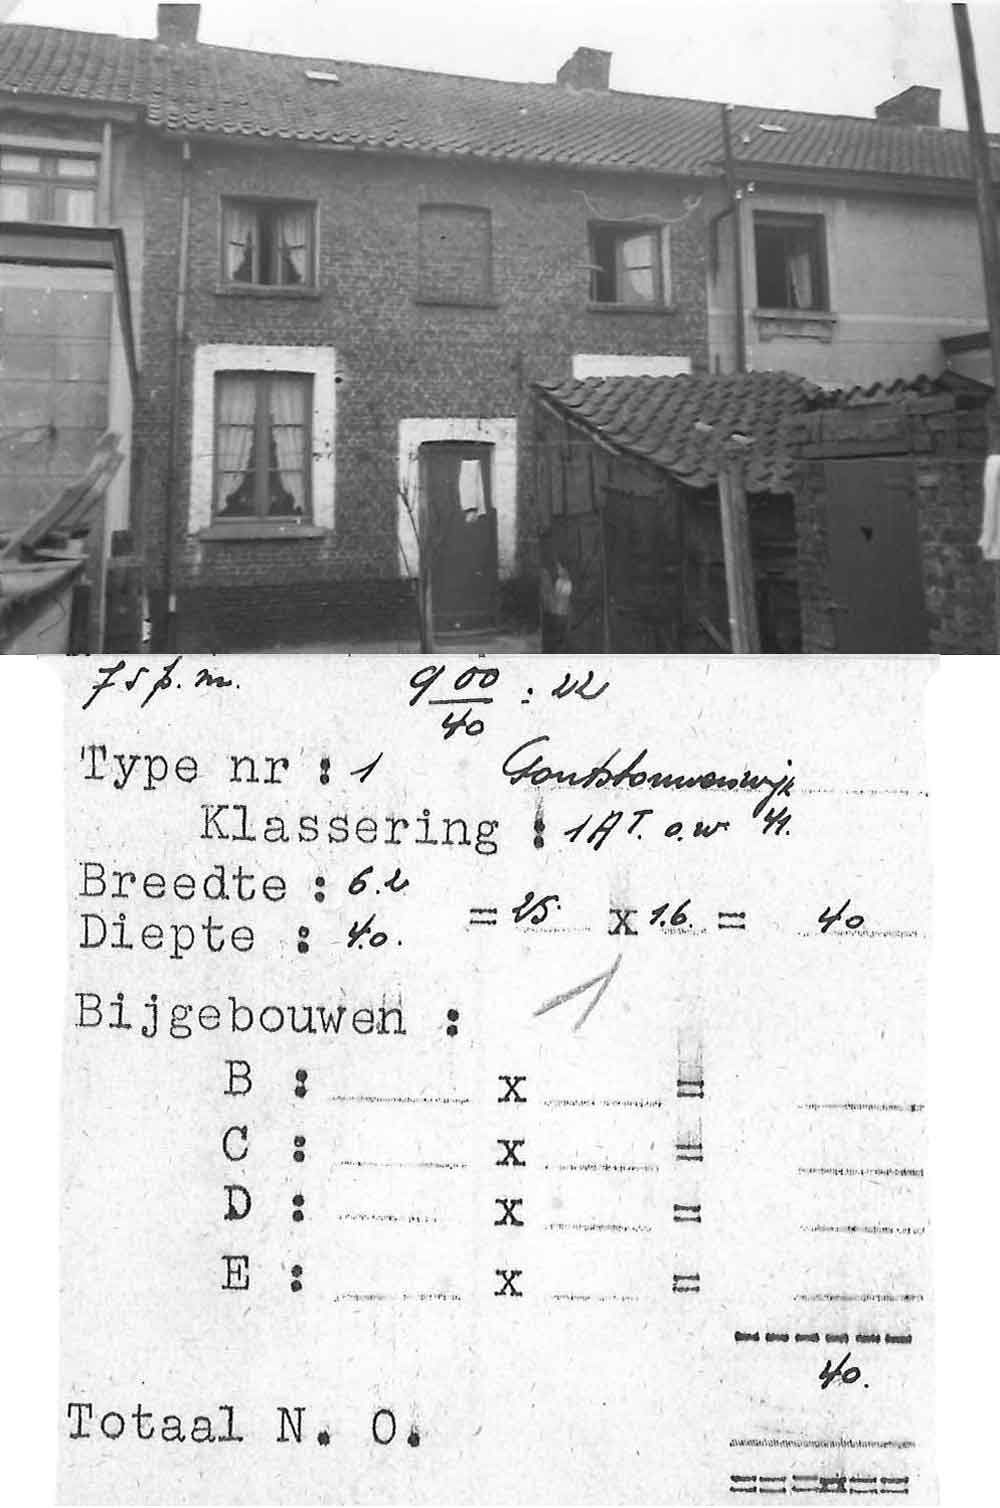 75 p. m. 900/40 : 22
Type nr : 1
Klassering : 1 A T. o.w. 41.
Breedte : 6.2
Diepte : 4.0. = 25. x 1.6. = 40
Bijgebouwen : 1
B : x =
C : x =
D : x =
E : x =
40.
Totaal N. O.